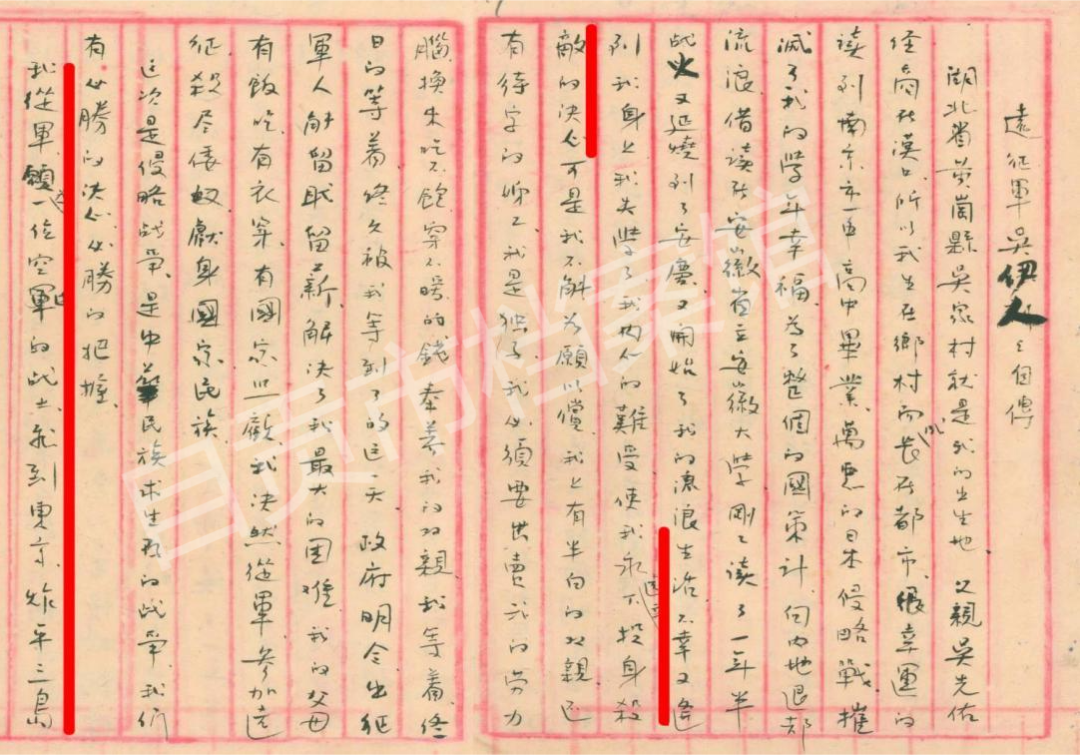 遠征軍吳伊人之自傳
湖北省黃崗縣吳家村就是我的出生地父親吳先佑
經商於漢口所以我生在鄉村而長在都市很幸運的
讀到南京市一中高中畢業萬惡的日本侵略戰摧
滅了我的學年幸福為了整個的國策計向內地退却
流浪借讀於安徽省立安徽大學剛々讀了一年半
戰火又延燒到了安慶又開始了我的流浪生活不幸又逢
到我身上我失學了我內心的難受使我永不投身殺
敵的決心可是我不能為願以償我上有半白的双親還
有待字的婢工我是獨子我必須要出賣我的勞力
腦換來吃不飽穿不暖的錢奉養我的双親我等着終
日的等着終久被我等到了的這一天政府明令出征
軍人能留職留薪解決了我最大的困難我的父母
有飯吃有衣穿有國家照顧我決然從軍參加遠
征殺尽倭奴獻身國家民族
這次是侵略战爭是中華民族求生存的战爭我们
有必勝的決心必勝的把握
我從軍願一位空軍的战士飛到東京炸平三島
自贡市档案馆